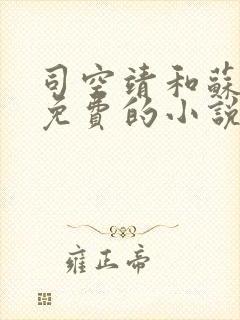 司空靖和蘇
免費的小說
雍正帝